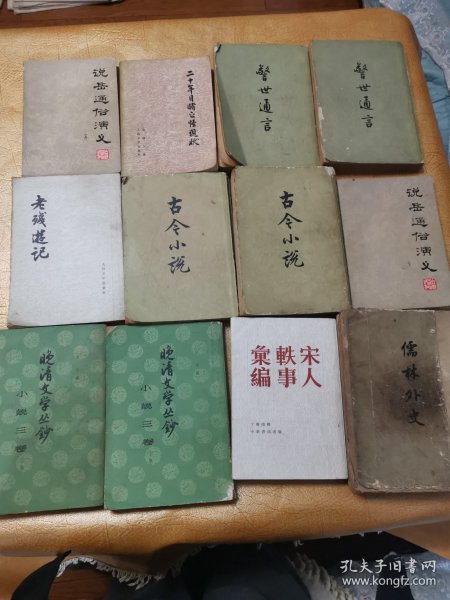 说岳通俗演义
二十年目睹之怪现状
警世通言
警世通言
老残遊记
古今小说
古今小说
说岳通俗演义
晚清文学丛钞
小说三卷
晚清文学丛钞
小说三卷
宋人
軼事
彙編
丁傳靖輯
中華書局出版
儒林外史
孔夫子旧书网
www.kongfz.com